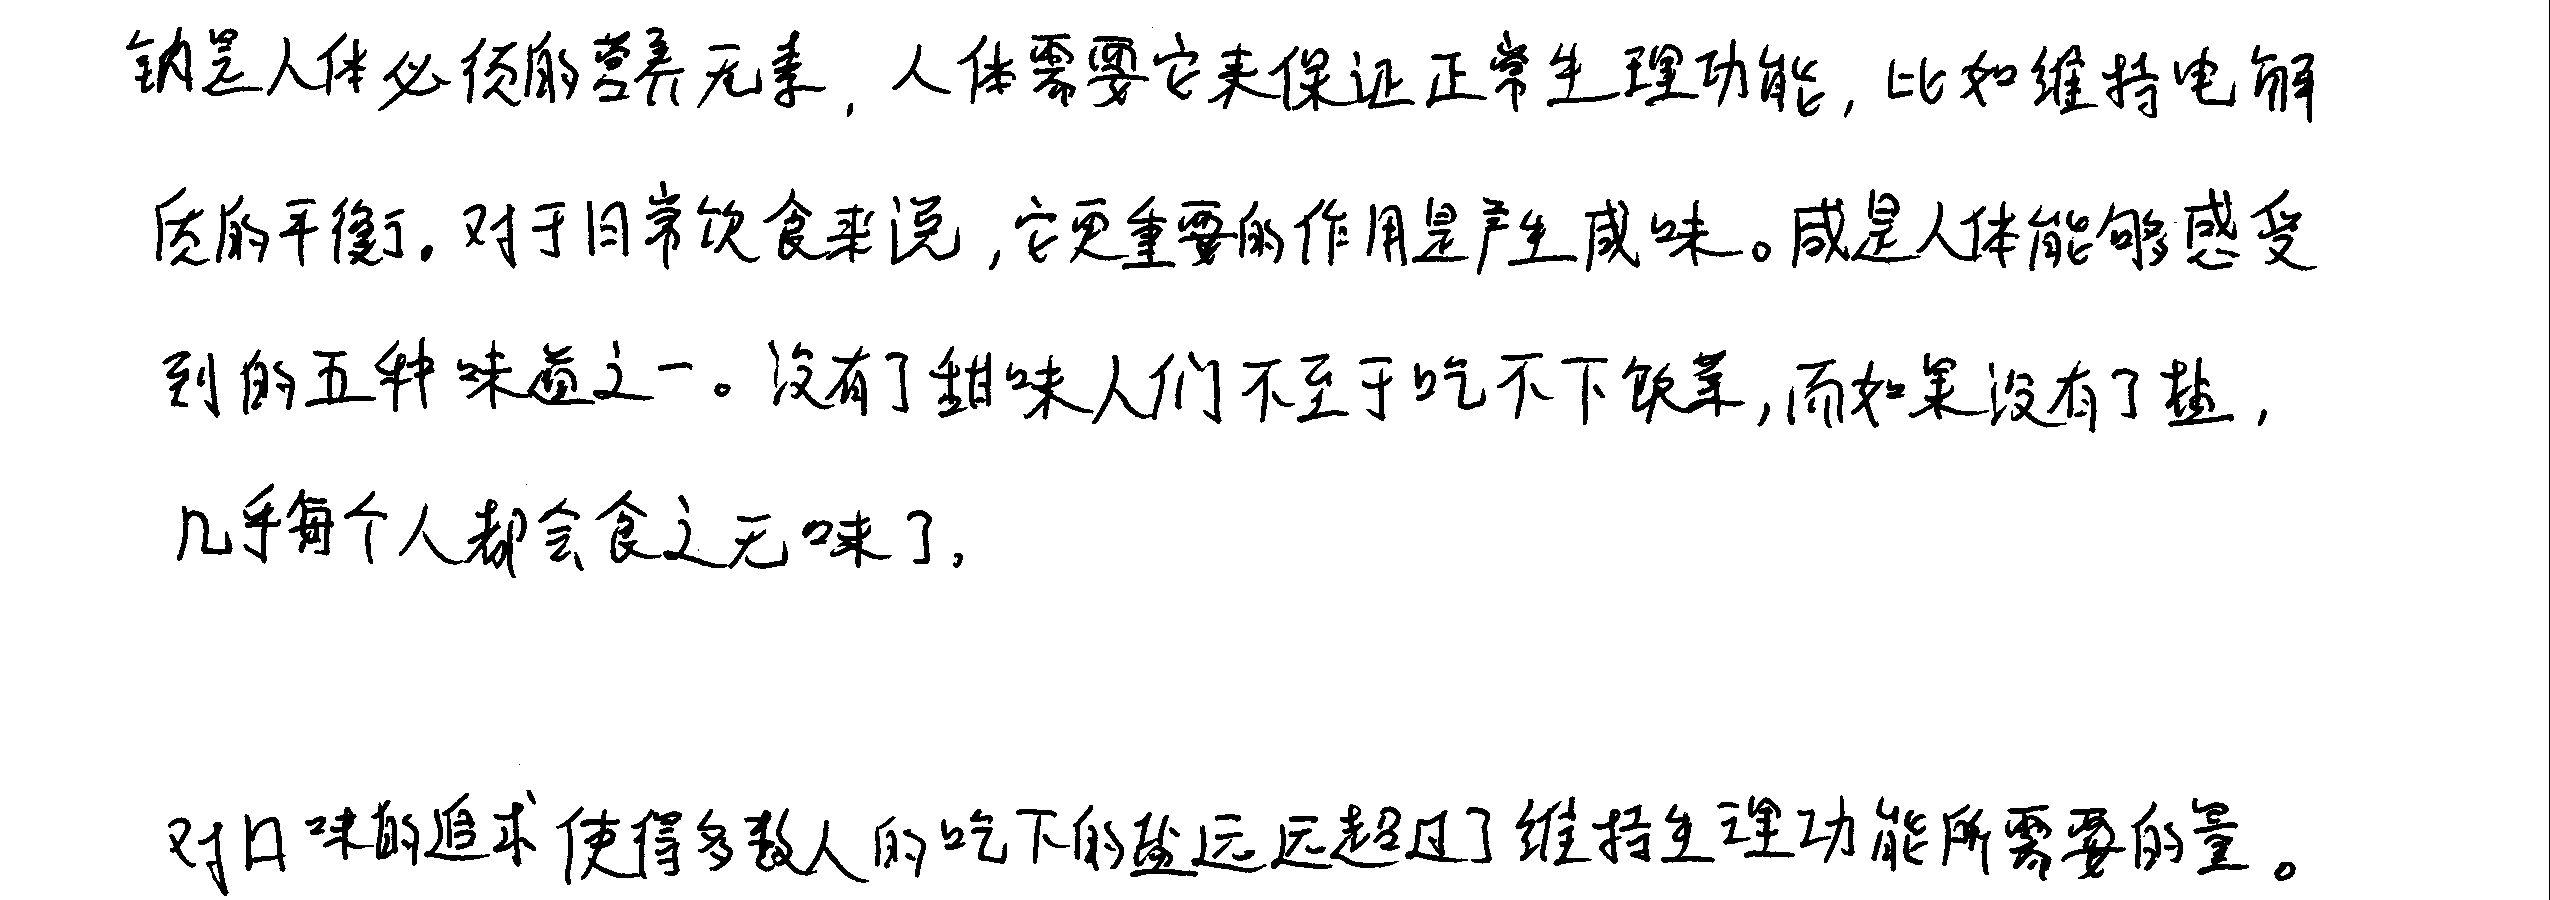 钠是人体必须的营养元素,人体需要它来保证正常生理功能,比如维持电解
质的平衡。对于日常饮食来说,它更重要的作用是产生咸味。咸是人体能够感受
到的五种味道之一。没有了甜味人们不至于吃不下饭菜,而如果没有了盐,
几乎每个人都会食之无味了,
对口味的追求使得多数人的吃下的盐远远超过了维持生理功能所需要的量。